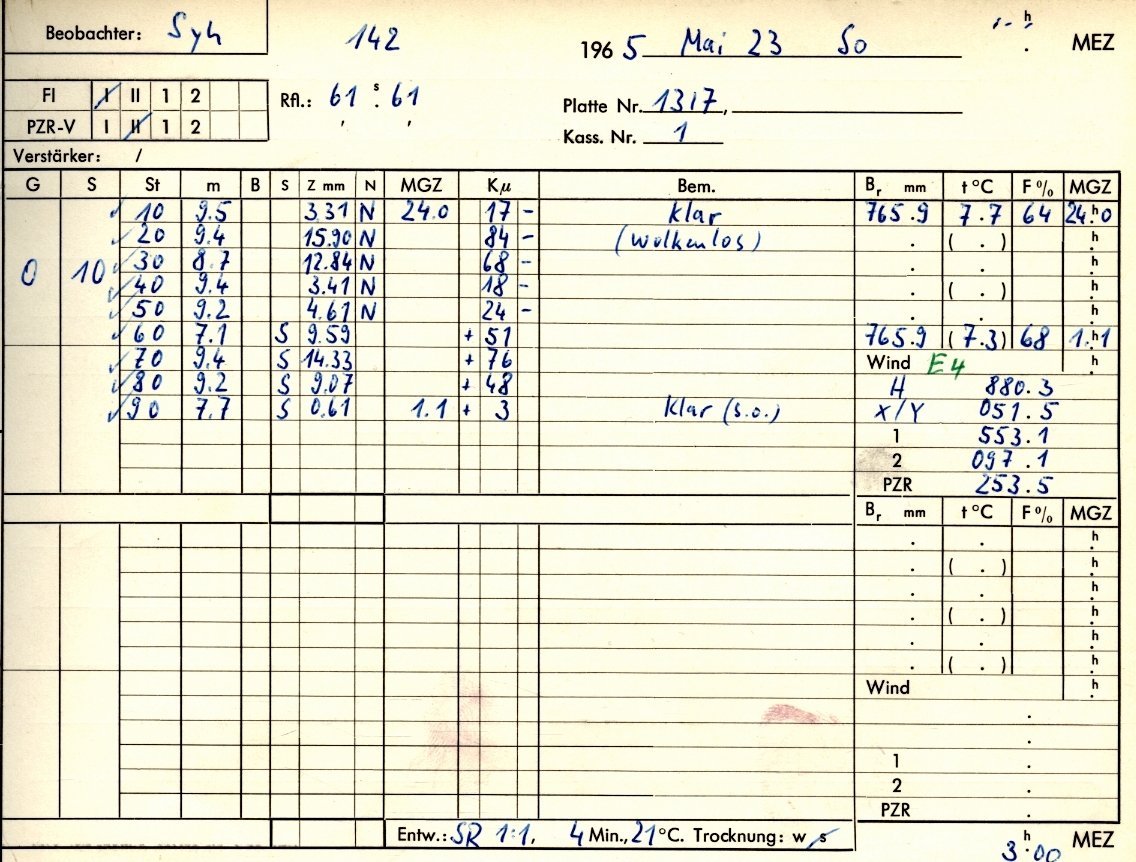 Beobachter: Syh 142 1965 Mai 23 So h MEZ
FI I II 1 2 Rfl.: 61 s. 61 Platte Nr. 1317,
PZR-V I II 1 2 Kass. Nr. 1
Verstärker: /
G S St m B S Z mm N MGZ Kµ Bem. Br mm t °C F % MGZ
✓ 10 9.5 3.31 N 24.0 17 - klar 765.9 7.7 64 24.h0
✓ 20 9.4 15.90 N 84 - (wolkenlos) . ( . ) h
0 10 ✓ 30 8.7 12.84 N 68 - . . h
✓ 40 9.4 3.41 N 18 - . ( . ) h
✓ 50 9.2 4.61 N 24 - . . h
✓ 60 7.1 S 9.59 + 51 765.9 (7.3) 68 1.h1
✓ 70 9.4 S 14.33 + 76 Wind E4 h
✓ 80 9.2 S 9.07 + 48 H 880.3
✓ 90 7.7 S 0.61 1.1 + 3 klar (s.o.) X/Y 051.5
1 553.1
2 097.1
PZR 253.5
Br mm t °C F % MGZ
. . h
. ( . ) h
. . h
. ( . ) h
. . h
. ( . ) h
Wind h
.
.
1 .
2 .
PZR .
Entw.: SR 1:1, 4 Min., 21 °C. Trocknung: w/s 3 h 00 MEZ